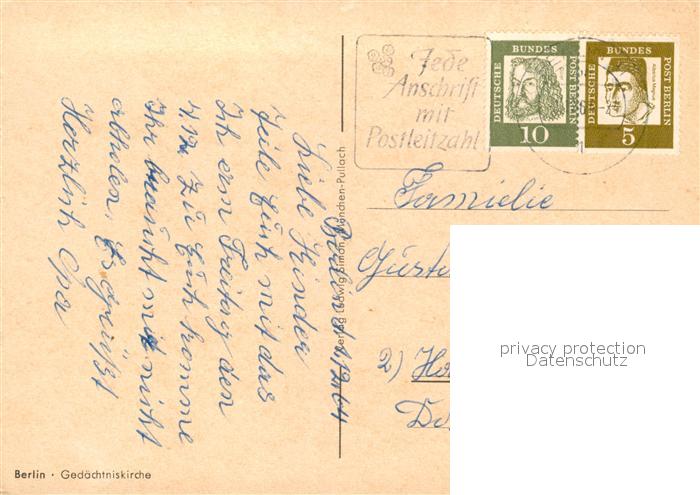 Jede
Anschrift
mit
Postleitzahl
DEUTSCHE BUNDES POST BERLIN
10
DEUTSCHE BUNDES POST BERLIN
Albertus Magnus
5
Familie
Güst
2) Ho
Do
privacy protection
Datenschutz
Verlag Ludwig Simon, München-Pullach
Berlin 1/12 64
Liebe Kinder
Teile Euch mit das
Ich am Freitag den
4.12. zu Euch komme
Ihr braucht mich nicht
abholen, Es grüßt
Herzlich Opa
Berlin · Gedächtniskirche